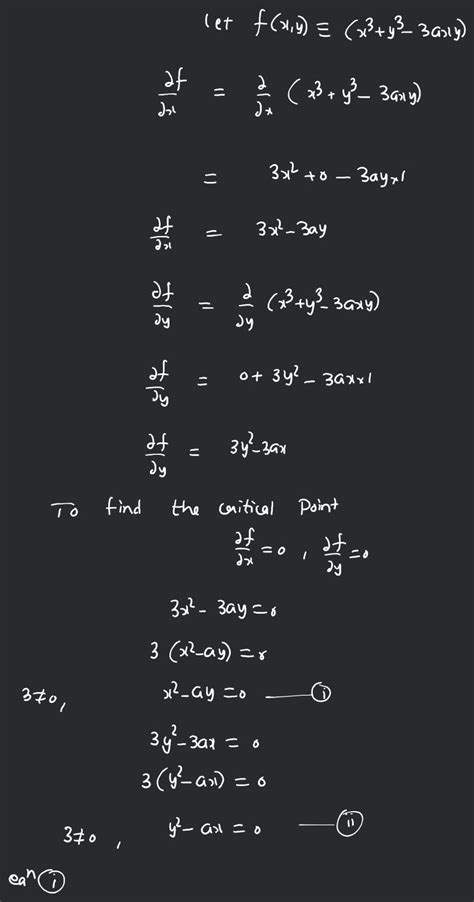 Let f(x,y) ≡ (x³+y³- 3axy)
∂f/∂x = ∂/∂x (x³ + y³ - 3axy)
= 3x² + 0 - 3ay×1
∂f/∂x = 3x² - 3ay
∂f/∂y = ∂/∂y (x³+y³- 3axy)
∂f/∂y = 0 + 3y² - 3ax×1
∂f/∂y = 3y²-3ax
To find the critical Point
∂f/∂x = 0 , ∂f/∂y = 0
3x² - 3ay = 0
3 (x²-ay) = 0
3≠0, x²-ay = 0 — (i)
3y²-3ax = 0
3(y²-ax) = 0
3≠0 , y²- ax = 0 — (ii)
eqⁿ (i)